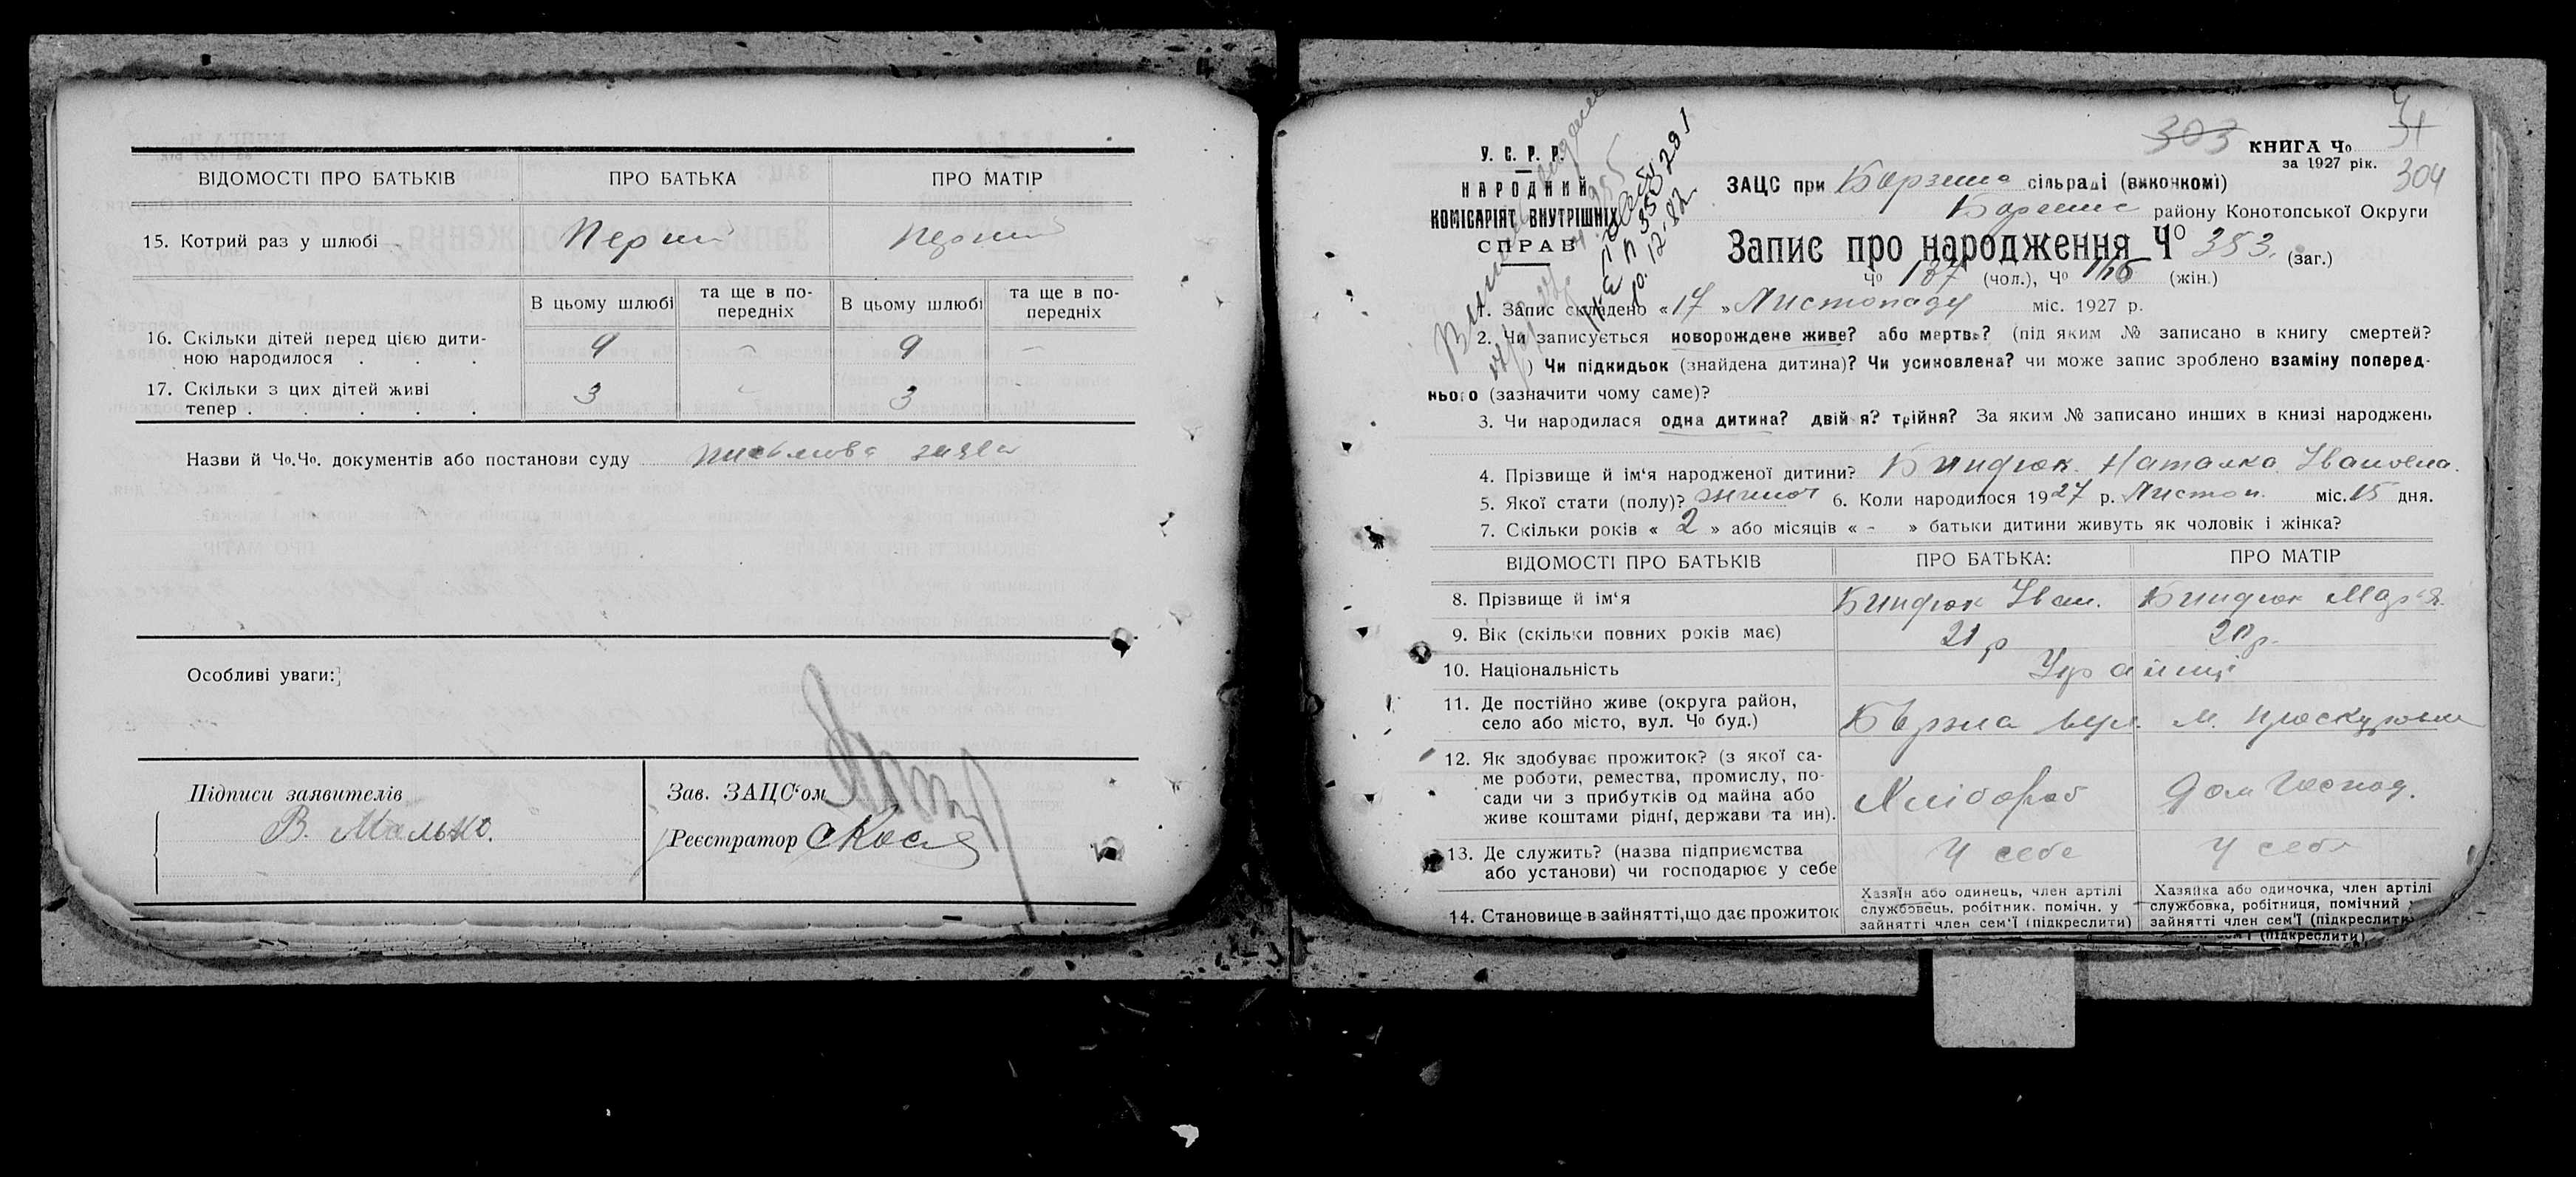 ВІДОМОСТІ ПРО БАТЬКІВ ПРО БАТЬКА ПРО МАТІР
15. Котрий раз у шлюбі Перший перший
В цьому шлюбі та ще в по- В цьому шлюбі та ще в по-
передніх передніх
16. Скільки дітей перед цією дити-
ною народилося . . . 4 – 4 –
17. Скільки з цих дітей живі
тепер . . . . . 3 – 3
Назви й Чо.Чо. документів або постанови суду письмова заява
Особливі уваги:
Підписи заявителів
В. Малько.
Зав. ЗАЦС'ом
Реєстратор
303 КНИГА Чо 31
за 1927 рік. 304
У. С. Р. Р.
НАРОДНИЙ
КОМІСАРІЯТ ВНУТРІШНІХ
СПРАВ
10.12.82
ЗАЦС при Борзна сільраді (виконкомі)
Борзенс района Конотопської Округи
Запис про народження Чо 353. (заг.)
Чо 187 (чол.), Чо 166 (жін.)
1. Запис складено «17» Листопаду міс. 1927 р.
2. Чи записується новорождене живе? або мертве? (під яким № записано в книгу смертей?
) Чи підкидьок (знайдена дитина)? Чи усиновлена? чи може запис зроблено взаміну поперед-
нього (зазначити чому саме)?
3. Чи народилася одна дитина? двійня? трійня? За яким № записано инших в книзі народжень
4. Прізвище й ім'я народженої дитини? Биндюк Наталка Івановна.
5. Якої стати (полу)? жиноч 6. Коли народилося 1927 р. Листоп. міс. 15 дня.
7. Скільки років « 2 » або місяців « - » батьки дитини живуть як чоловік і жінка?
ВІДОМОСТІ ПРО БАТЬКІВ ПРО БАТЬКА: ПРО МАТІР
8. Прізвище й ім'я Биндюк Іван. Биндюк Мар'я.
9. Вік (скільки повних років має) 21 р 20 р.
10. Національність Українці
11. Де постійно живе (округа район,
село або місто, вул. Чо буд.) Борзна вул. М.
12. Як здобуває прожиток? (з якої са-
ме роботи, ремества, промислу, по-
сади чи з прибутків од майна або
живе коштами рідні, держави та ин). Хлібороб Дом Господ.
13. Де служить? (назва підприємства
або установи) чи господарює у себе У себе У себе
14. Становище в зайнятті, що дає прожиток
Хазяїн або одинець, член артілі
службовець, робітник. помічн. у
зайнятті член сем'ї (підкреслити)
Хазяйка або одиночка, член артілі
службовка, робітниця, помічний у
зайнятті член сем'ї (підкреслити)
(підкреслити)